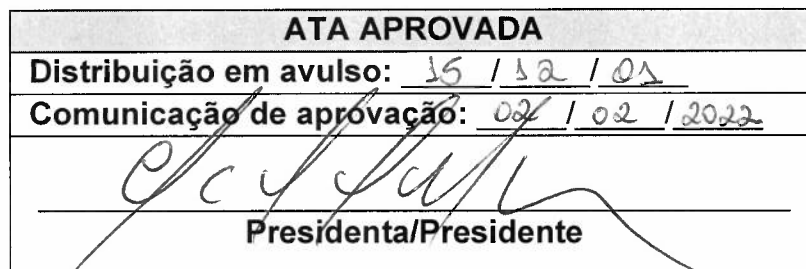 ATA APROVADA
Distribuição em avulso: 15 / 12 / 01
Comunicação de aprovação: 02 / 02 / 2022
Presidenta/Presidente